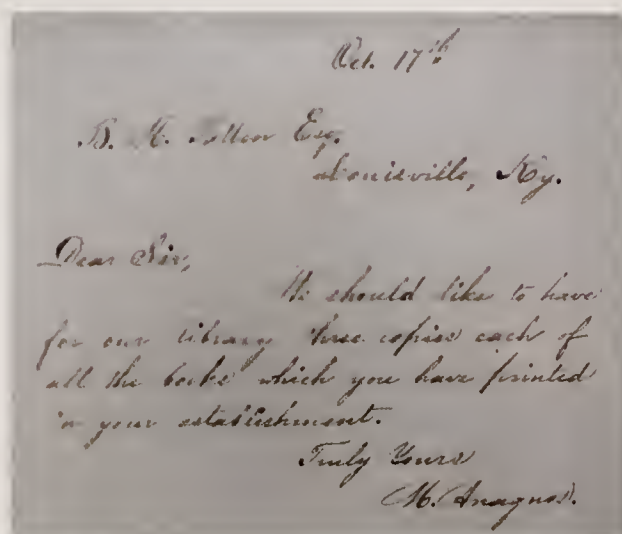 Oct. 17th
B. K. Esq.
Louisville, Ky.
Dear Sir,
We should like to have
for our library three copies each of
all the books which you have printed
in your establishment.
Truly Yours
M. Anagnos.